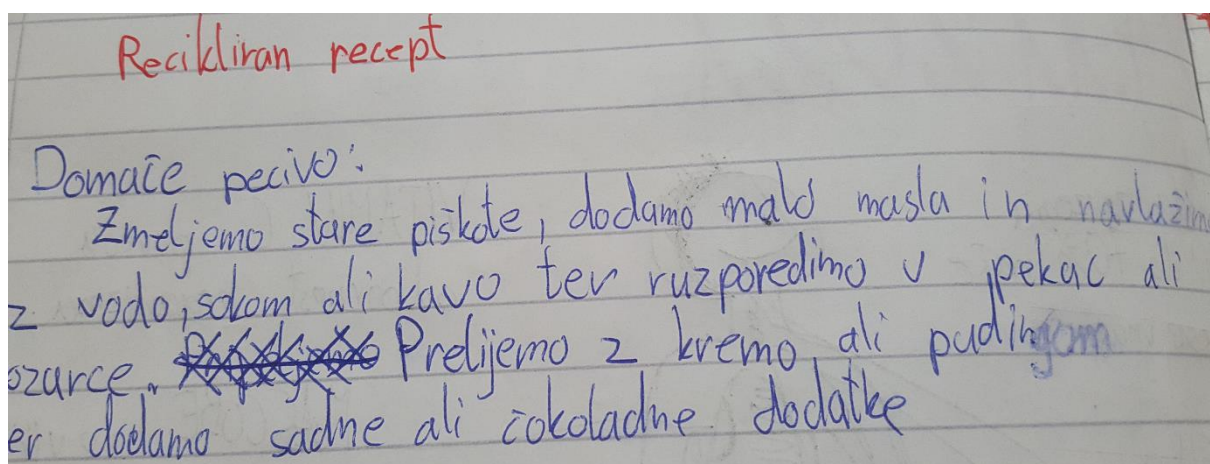 Recikliran recept
Domače pecivo:
Zmeljemo stare piškote, dodamo malo masla in navlažim
z vodo, sokom ali kavo ter razporedimo v pekac ali
ozarce. Prelijemo z kremo ali pudingom
er dodamo sadne ali čokoladne dodatke